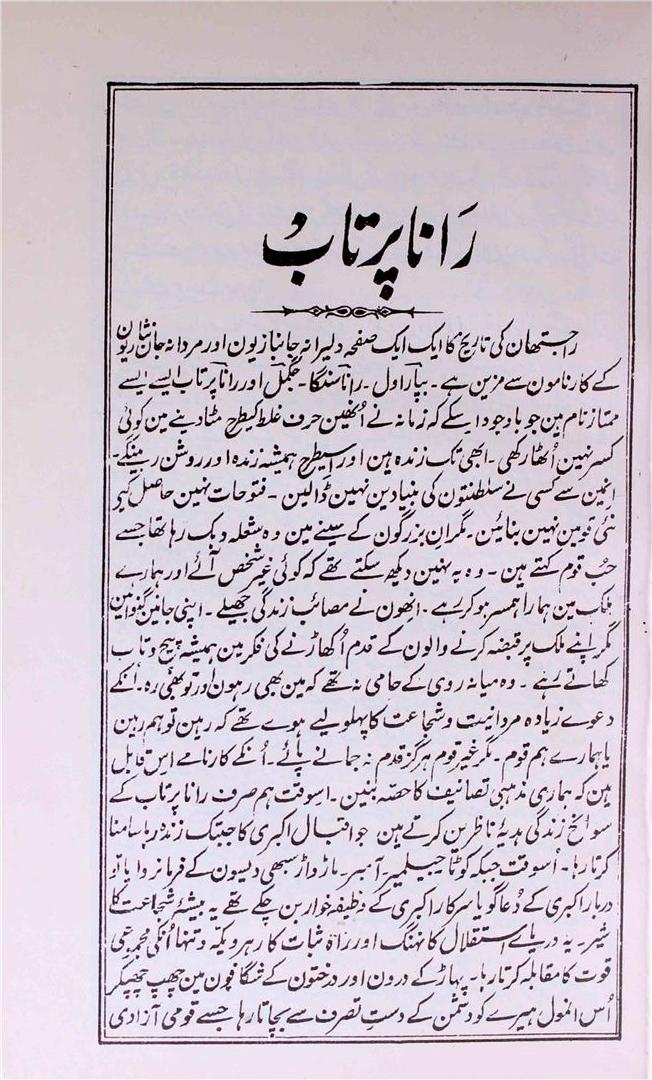 رَانا پرتابْ
راجستھان کی تاریخ کا ایک ایک صفحہ دلیرانہ جانبازیون اور مردانہ جان نثاریون
کے کارنامون سے مزین ہے۔ بپّا راول۔ رانا سنگا۔ جگمل اور رانا پرتاب ایسے ایسے
ممتاز نام ہین جو باوجود اسکے کہ زمانہ نے اُنھین حرف غلط کیطرح مٹا دینے مین کوئی
کسر نہین اُٹھا رکھی۔ ابھی تک زندہ ہین اور اسیطرح ہمیشہ زندہ اور روشن رہینگے۔
انمین سے کسی نے سلطنتون کی بنیادین نہین ڈالین۔ فتوحات نہین حاصل کین
نئی قومین نہین بنائین۔ مگر ان بزرگون کے سینے مین وہ شعلہ دہک رہا تھا جسے
حُب قوم کہتے ہین۔ وہ یہ نہین دیکھ سکتے تھے کہ کوئی غیر شخص آئے اور ہمارے
ملک مین ہمارا ہمسر ہوکر رہے۔ انھون نے مصائب زندگی جھیلے۔ اپنی جانین گنوائین
مگر اپنے ملک پر قبضہ کرنے والون کے قدم اُکھاڑنے کی فکر مین ہمیشہ پیچ و تاب
کھاتے رہے۔ وہ میانہ روی کے حامی نہ تھے کہ مین بھی رہون اور تو بھی رہ۔ اُنکے
دعوے زیادہ مردانیت و شجاعت کا پہلو لیے ہوے تھے کہ رہین تو ہم رہین
یا ہمارے ہم قوم۔ مگر غیر قوم ہرگز قدم نہ جمانے پائے۔ اُنکے کارنامے اِس قابل
ہین کہ ہماری مذہبی تصانیف کا حصہ بنین۔ اسوقت ہم صرف رانا پرتاب کے
سوانح زندگی ہدیۂ ناظرین کرتے ہین جو اقبال اکبری کا جبتک زندہ رہا سامنا
کرتا رہا۔ اُسوقت جبکہ کوٹا جیسلمیر۔ آمبر۔ مارواڑ سبھی دیسون کے فرمانروا یا تو
دربار اکبری کے دُعاگو یا سرکار اکبری کے وظیفہ خوار بن چکے تھے یہ بیشۂ شجاعت کا
شیر۔ یہ دریائے استقلال کا نہنگ اور راہ ثبات کا رہرو یکہ و تنہا اُنکی مجموعی
قوت کا مقابلہ کرتا رہا۔ پہاڑ کے درون اور درختون کے شگافون مین چھپ چھپکر
اُس انمول ہیرے کو دشمن کے دستِ تصرف سے بچاتا رہا جسے قومی آزادی